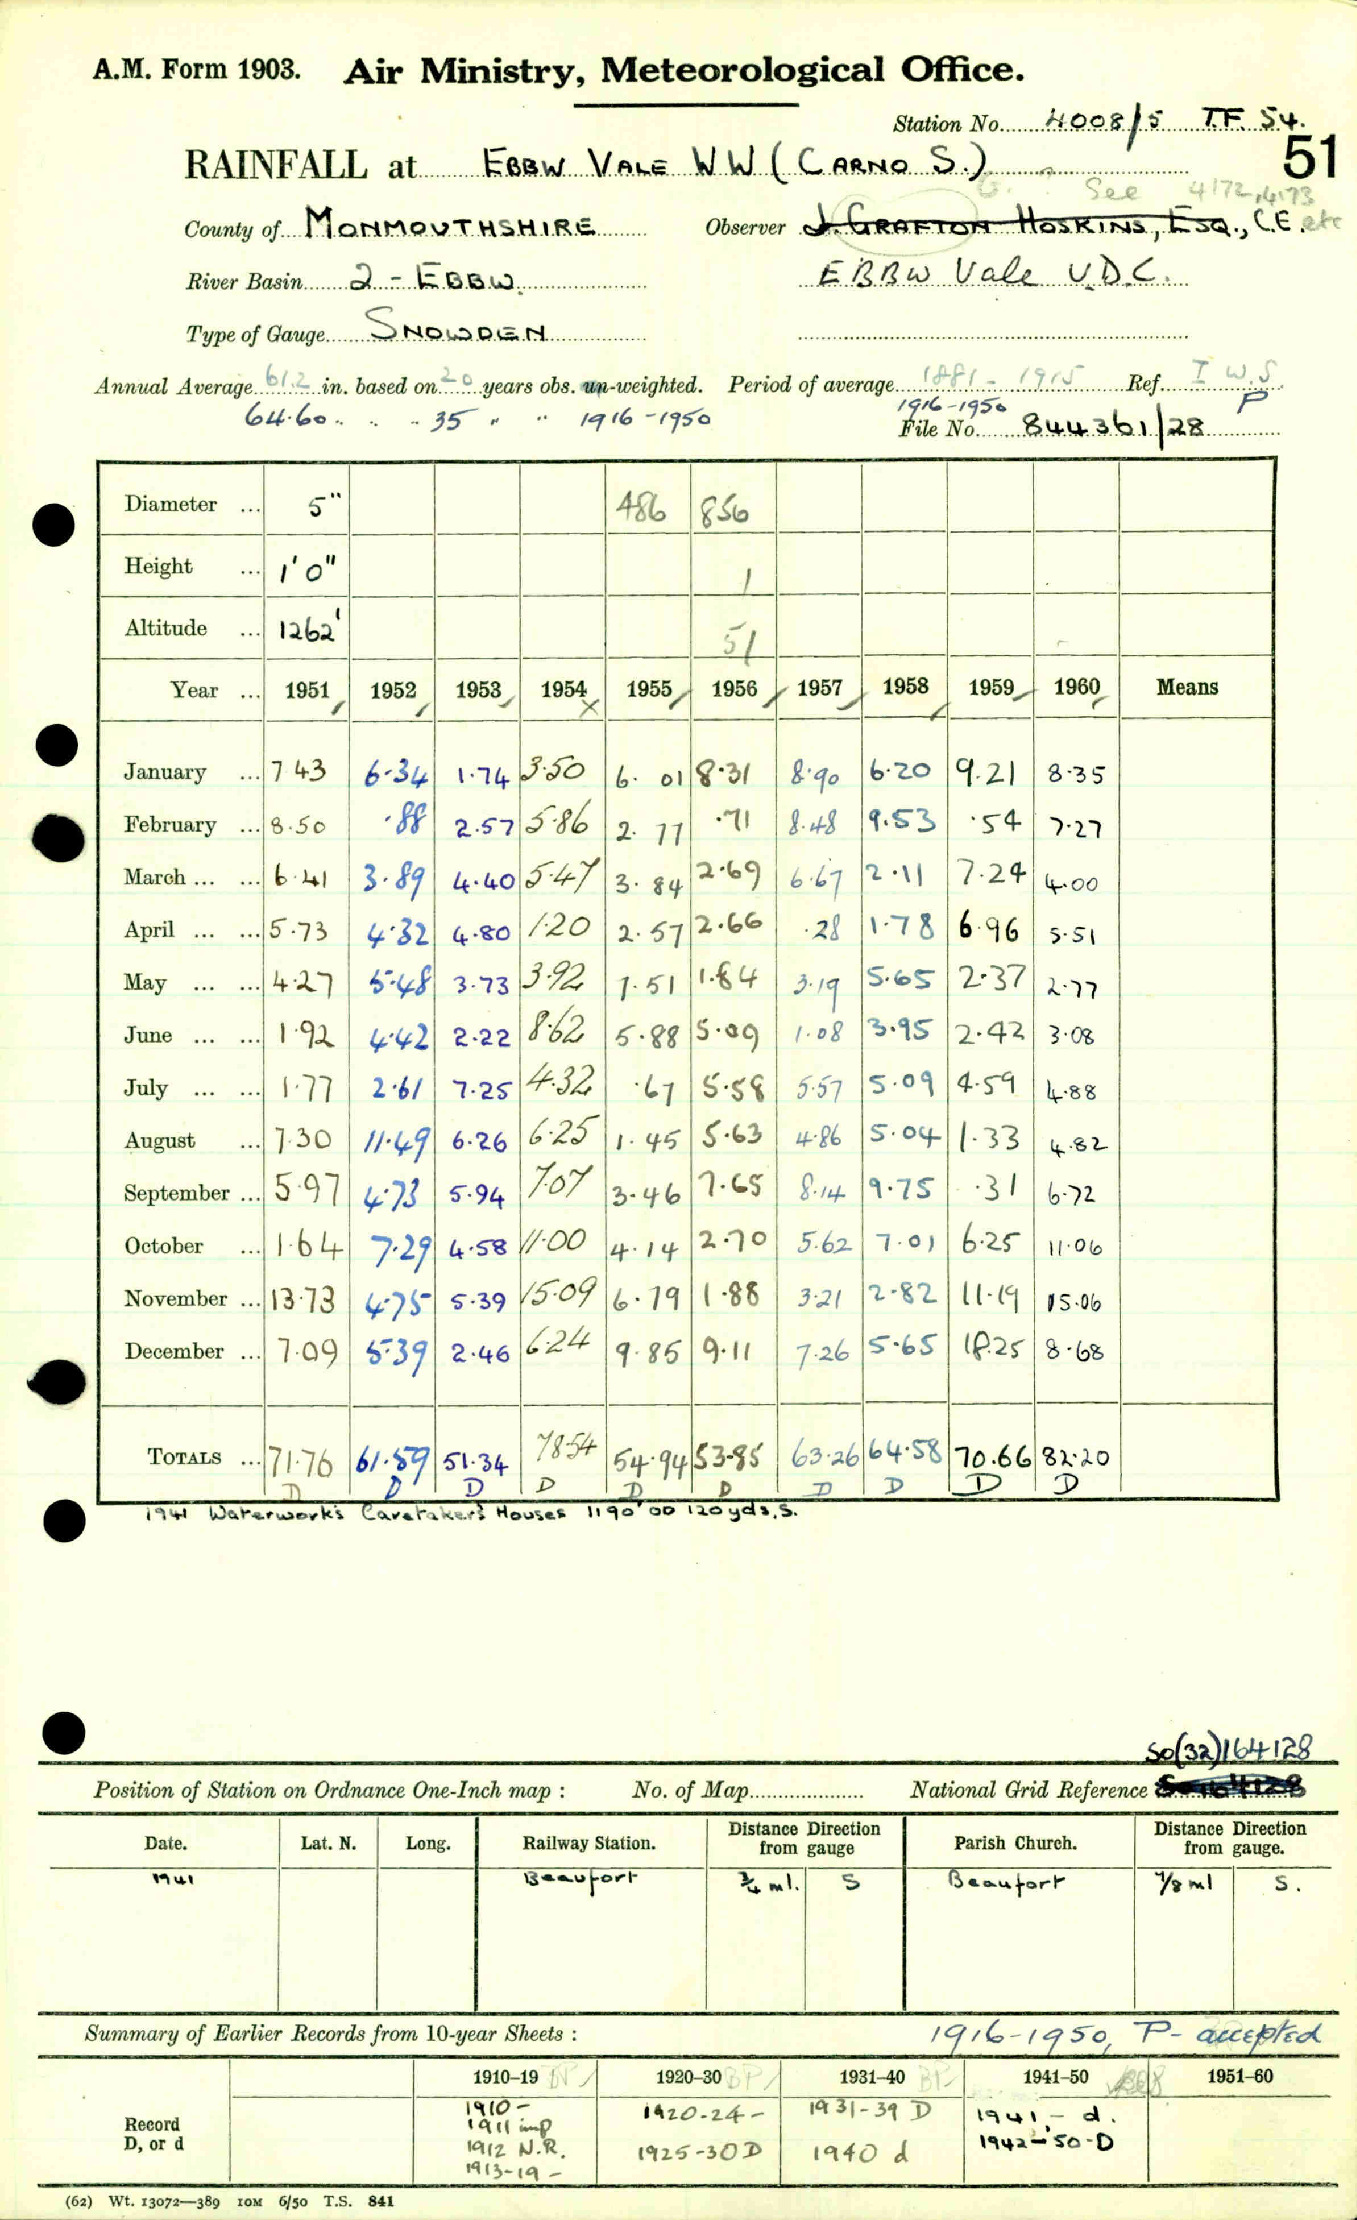 A.M. Form 1903. Air Ministry, Meteorological Office.
Station No. 4008/5 T.F. 54.
51
RAINFALL at EBBW VALE WW (CARNO S.)
G. ? See 4172, 4173 etc
County of MONMOUTHSHIRE Observer J. GRAFTON HOSKINS, ESQ., C.E.
River Basin 2 - EBBW. EBBW Vale U.D.C.
Type of Gauge SNOWDEN
Annual Average 61.2 in. based on 20 years obs. un-weighted. Period of average 1881 - 1915 Ref. I W.S.
64.60 " " " 35 " " 1916-1950 1916-1950 P
File No. 844361/28
Diameter ... 5" 486 856
Height ... 1'0" 1
Altitude ... 1262' 51
Year ... 1951 1952 1953 1954 1955 1956 1957 1958 1959 1960 Means
January ... 7.43 6.34 1.74 3.50 6.01 8.31 8.90 6.20 9.21 8.35
February ... 8.50 .88 2.57 5.86 2.77 .71 8.48 9.53 .54 7.27
March ... ... 6.41 3.89 4.40 5.47 3.84 2.69 6.67 2.11 7.24 4.00
April ... ... 5.73 4.32 4.80 1.20 2.57 2.66 .28 1.78 6.96 5.51
May ... ... 4.27 5.48 3.73 3.92 7.51 1.84 3.19 5.65 2.37 2.77
June ... ... 1.92 4.42 2.22 8.62 5.88 5.09 1.08 3.95 2.42 3.08
July ... ... 1.77 2.61 7.25 4.32 .67 5.58 5.57 5.09 4.59 4.88
August ... 7.30 11.49 6.26 6.25 1.45 5.63 4.86 5.04 1.33 4.82
September ... 5.97 4.73 5.94 7.07 3.46 7.65 8.14 9.75 .31 6.72
October ... 1.64 7.29 4.58 11.00 4.14 2.70 5.62 7.01 6.25 11.06
November ... 13.73 4.75 5.39 15.09 6.79 1.88 3.21 2.82 11.19 15.06
December ... 7.09 5.39 2.46 6.24 9.85 9.11 7.26 5.65 18.25 8.68
TOTALS ... 71.76 61.59 51.34 78.54 54.94 53.85 63.26 64.58 70.66 82.20
D D D D D D D D D D
1941 Waterworks Caretaker's Houses 1190'00 120yds, S.
SO(32)164128
Position of Station on Ordnance One-Inch map : No. of Map National Grid Reference
Date. Lat. N. Long. Railway Station. Distance from Direction gauge Parish Church. Distance from Direction gauge.
1941 Beaufort 3/4 ml. S Beaufort 7/8 ml S.
Summary of Earlier Records from 10-year Sheets : 1916-1950, P - accepted
1910–19 1920–30 BP 1931–40 BP 1941–50 1951–60
Record D, or d
1910 - 1920-24 - 1931-39 D 1941, - d.
1911 imp
1912 N.R. 1925-30 D 1940 d 1942-'50-D
1913-19 -
(62) Wt. 13072—389 10M 6/50 T.S. 841